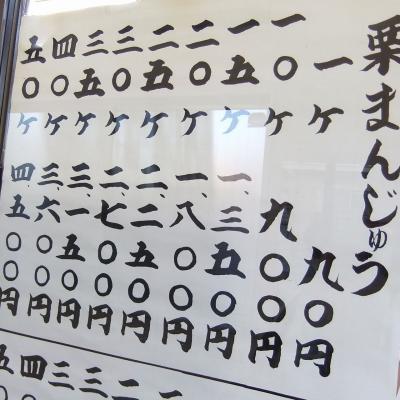 栗まんじゅう
一ケ 九〇円
一〇ケ 九〇〇円
一五ケ 一、三五〇円
二〇ケ 一、八〇〇円
二五ケ 二、二五〇円
三〇ケ 二、七〇〇円
三五ケ 三、一五〇円
四〇ケ 三、六〇〇円
五〇ケ 四、五〇〇円
二
三
三
四
五